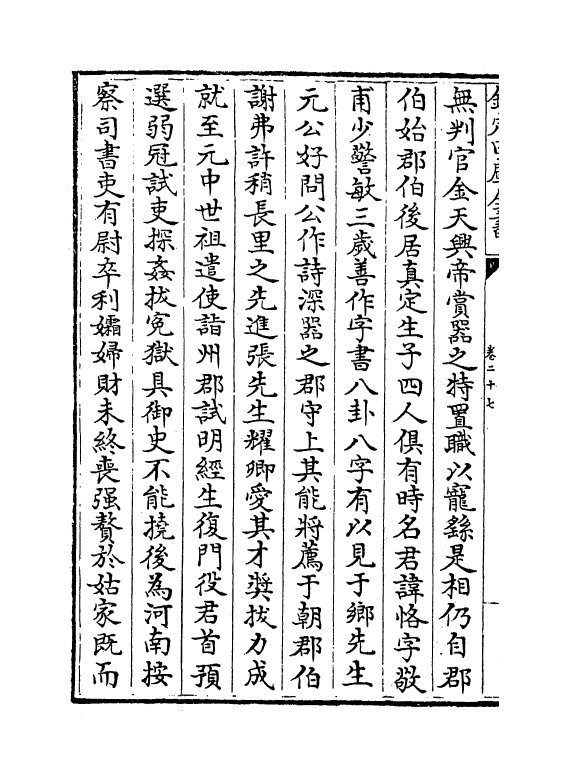 欽定四庫全書
卷二十七
無判官金天興帝賞器之特置職以寵繇是相仍自郡
伯始郡伯後居真定生子四人俱有時名君諱恪字敬
甫少警敏三歲善作字書八卦八字有以見于鄉先生
元公好問公作詩深器之郡守上其能將薦于朝郡伯
謝弗許稍長里之先進張先生耀卿愛其才奬拔力成
就至元中世祖遣使詣州郡試明經生復門役君首預
選弱冠試吏探姦㧞寃獄具御史不能撓後為河南按
察司書吏有尉卒利孀婦財未終喪强贅於姑家既而